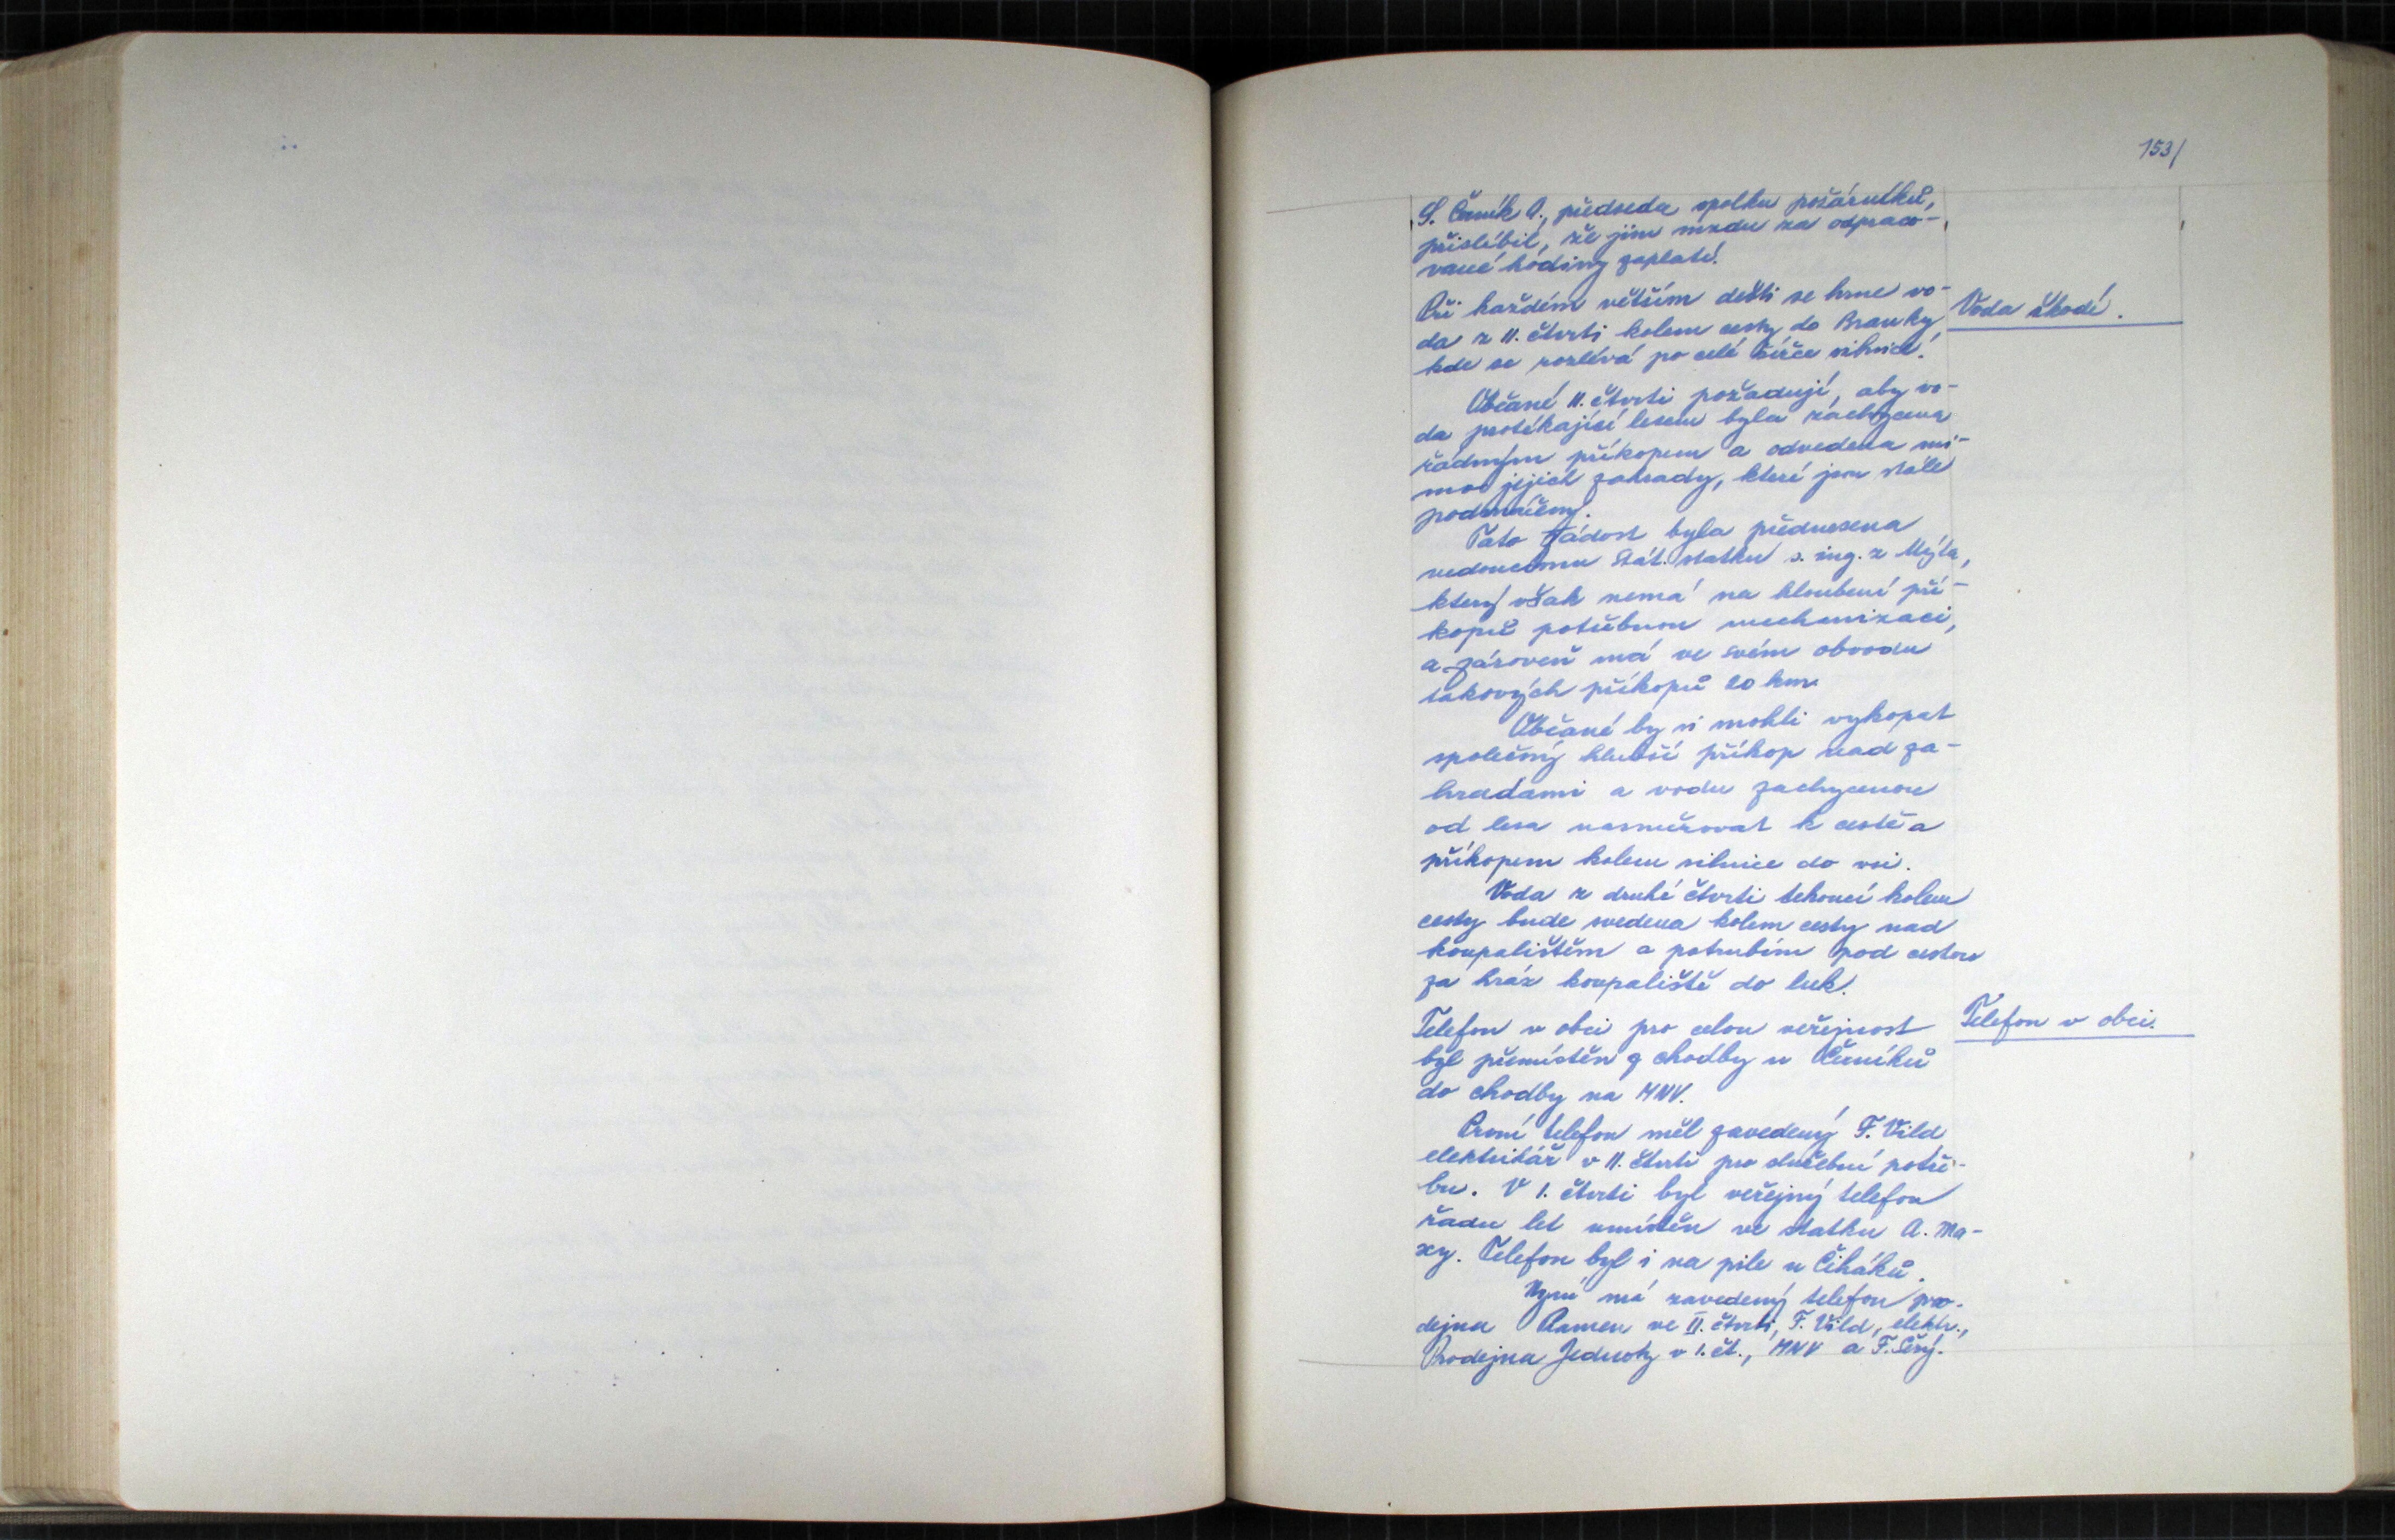 153/
S. Černík A., předseda spolku požárníků,
přislíbil, že jim mzdu za odpraco-
vané hodiny zaplatí.
Při každém větším dešti se hrne vo-
Voda škodí.
da z II. čtvrti kolem cesty do Branky,
kde se rozlévá po celé šířce silnice.
Občané II. čtvrti požadují, aby vo-
da protékající lesem byla zachycena
řádným příkopem a odvedena mi-
mo jejich zahrady, které jsou stále
podmáčeny.
Tato žádost byla přednesena
vedoucímu Stát. statku s. ing. z Mýta,
který však nemá na hloubení pří-
kopů potřebnou mechanizaci,
a zároveň má ve svém obvodu
takových příkopů 20 km.
Občané by si mohli vykopat
společný hlubší příkop nad za-
hradami a vodu zachycenou
od lesa nasměrovat k cestě a
příkopem kolem silnice do vsi.
Voda z druhé čtvrti tekoucí kolem
cesty bude svedena kolem cesty nad
koupalištěm a potrubím pod cestou
za hráz koupaliště do luk.
Telefon v obci pro celou veřejnost
Telefon v obci.
byl přemístěn z chodby u Černíků
do chodby na MNV.
První telefon měl zavedený F. Vild
elektrikář v II. čtvrti pro služební potře-
bu. V I. čtvrti byl veřejný telefon
řadu let umístěn ve statku A. Ma-
xy. Telefon byl i na pile u Čiháků.
Nyní má zavedený telefon pro-
dejna Ramen ve II. čtvrti, F. Vild, elektr.,
Prodejna Jednoty v I. čt., MNV a F.